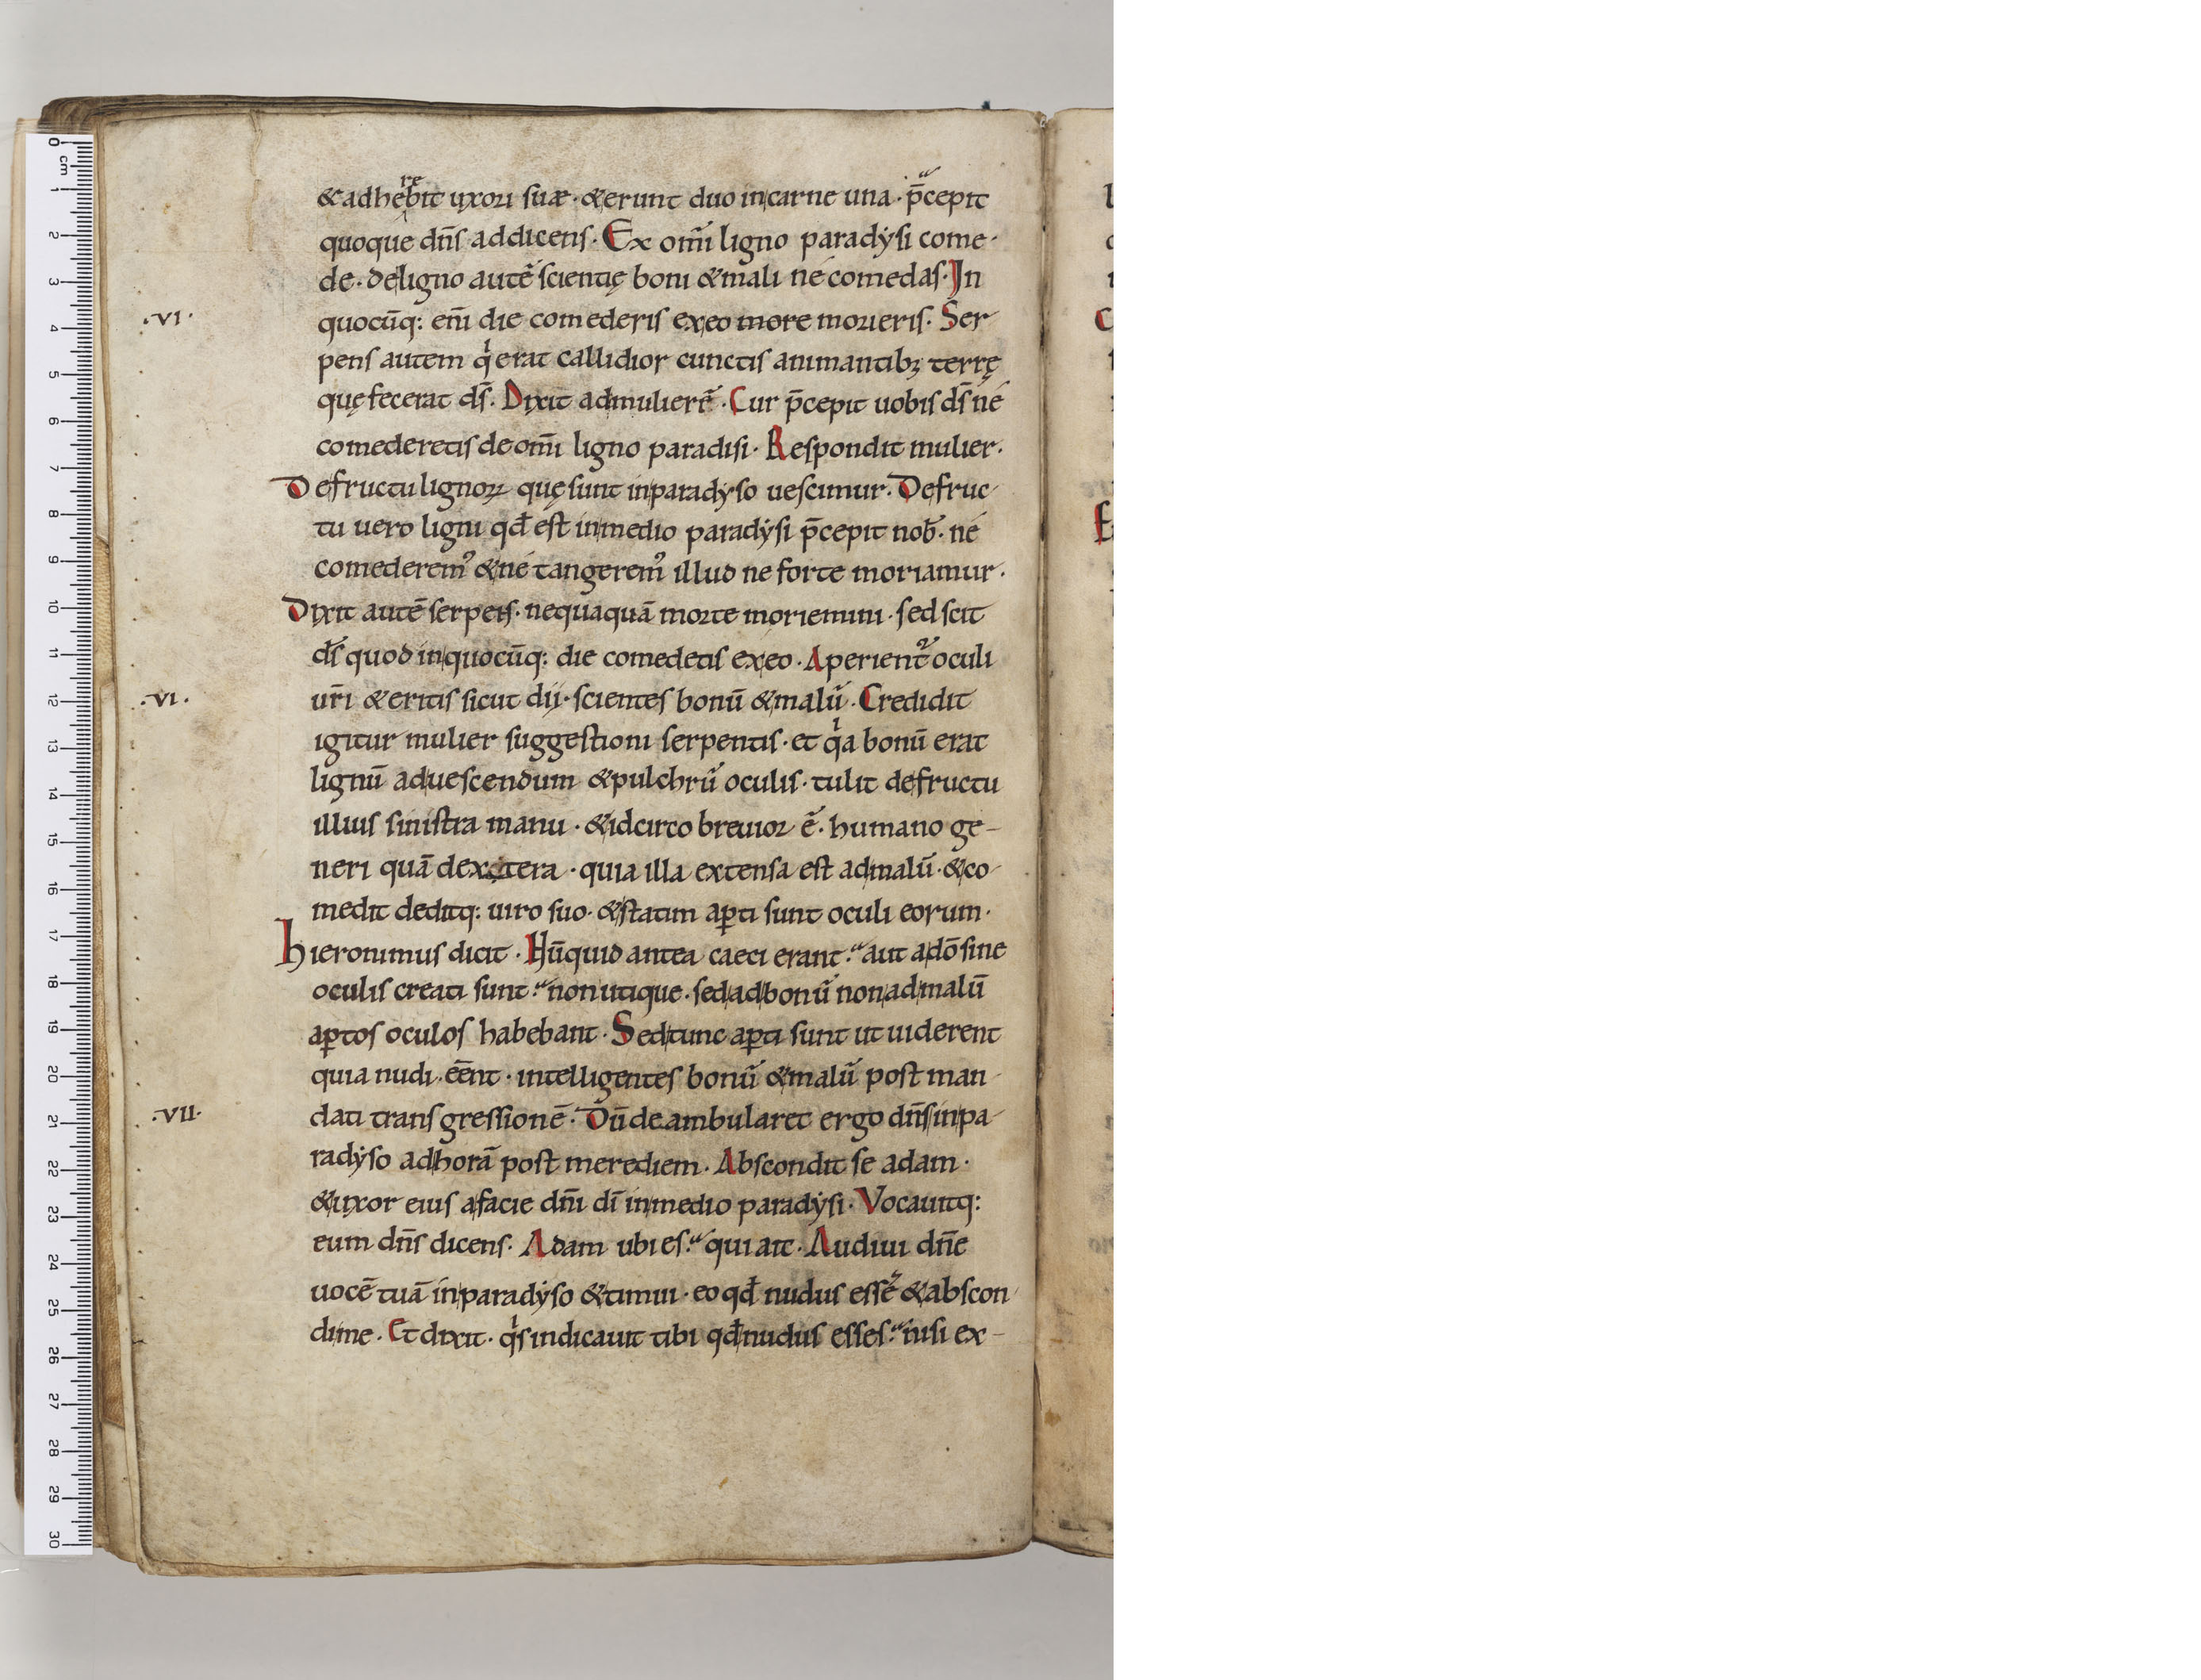 & adherebit uxori suæ · & erunt duo in carne una · p̄cepit
quoque dn̄s addicens · Ex om̄i ligno paradẏsi come·
de · de ligno autē scientię boni & mali né comedas · In
·VI· quocūq: eni̅ die comederis ex eo more morieris · Ser
pens autem qi erat callidior cunctis animantibꝫ terrę
quę fecerat ds̄ · Dixit ad mulierē · Cur p̄cepit uobis ds̄ né
comederetis de om̄i ligno paradisi · Respondit mulier ·
De fructu lignoꝝ quę sunt in paradẏso uescimur · De fruc
tu uero ligni qđ est in medio paradẏsi p̄cepit nob̄ · né
comederemꝰ & né tangeremꝰ illud ne forte moriamur ·
Dixit autē serpens · nequaquā morte moriemini · sed scit
ds̄ quod in quocūq: die comedetis ex eo · Aperient᷑ oculi
·VI· ur̄i & eritis sicut dii · scientes bonū & malū · Credidit
igitur mulier suggestioni serpentis · et qia bonū erat
lignū ad uescendum & pulchrū oculis · tulit de fructu
illius sinistra manu · & idcirco breuior ē · humano ge-
neri quā dextera · quia illa extensa est ad malū · & co
medit deditq: uiro suo · & statim aꝑti sunt oculi eorum ·
hieronimus dicit · Nūquid antea caeci erant? aut a dō sine
oculis creati sunt? non utique · sed ad bonū non ad malū
aꝑtos oculos habebant · Sed tunc aꝑti sunt ut uiderent
quia nudi eēnt · intelligentes bonū & malū post man
·VII· dati transgressionē · Dū deambularet ergo dn̄s in pa
radẏso ad horā post merediem · Abscondit se adam ·
& uxor eius a facie dn̄i dī in medio paradẏsi · Vocauitq:
eum dn̄s dicens · Adam ubi es? qui ait · Audiui dn̄e
uocē tuā in paradẏso & timui · eo qđ nudus essē & abscon
di me · Et dixit · qis indicauit tibi qđ nudus esses? nisi ex-